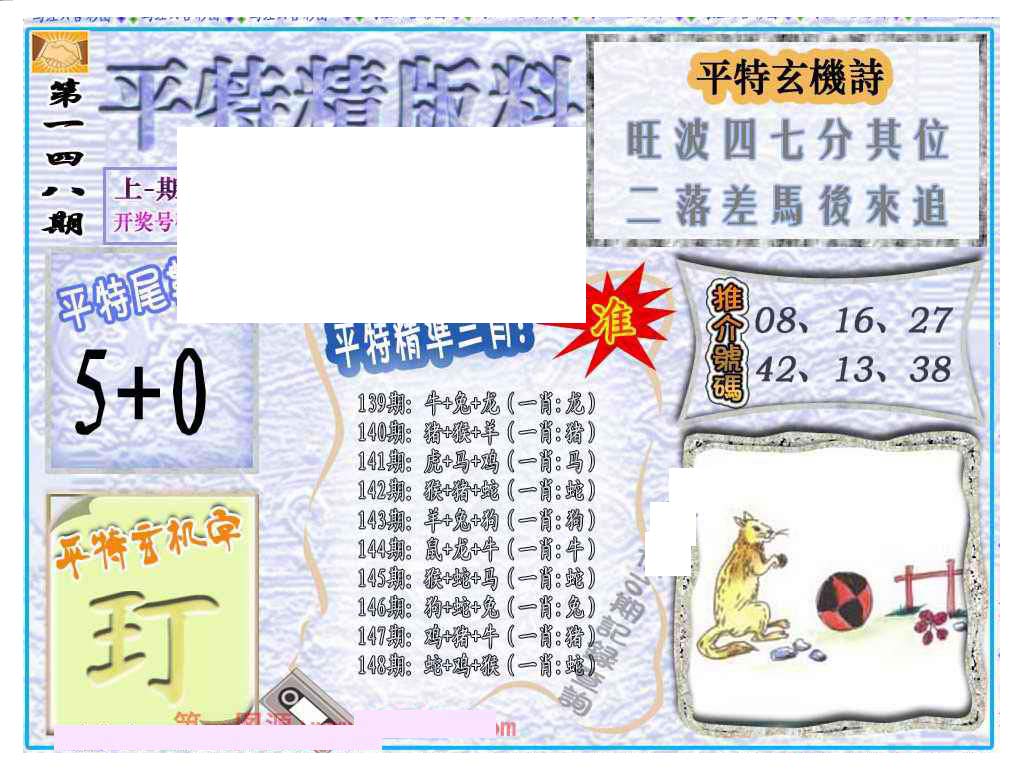 第一四八期
平特精版料
上-期
开奖号
平特玄機詩
旺波四七分其位
二落差馬後來追
平特尾
5+0
平特精準三肖!
准
推介號碼
08、16、27
42、13、38
139期: 牛+兔+龙(一肖:龙)
140期: 猪+猴+羊(一肖:猪)
141期: 虎+马+鸡(一肖:马)
142期: 猴+猪+蛇(一肖:蛇)
143期: 羊+兔+狗(一肖:狗)
144期: 鼠+龙+牛(一肖:牛)
145期: 猴+蛇+马(一肖:蛇)
146期: 狗+蛇+兔(一肖:兔)
147期: 鸡+猪+牛(一肖:猪)
148期: 蛇+鸡+猴(一肖:蛇)
期記錄查詢
平特玄机字
玎